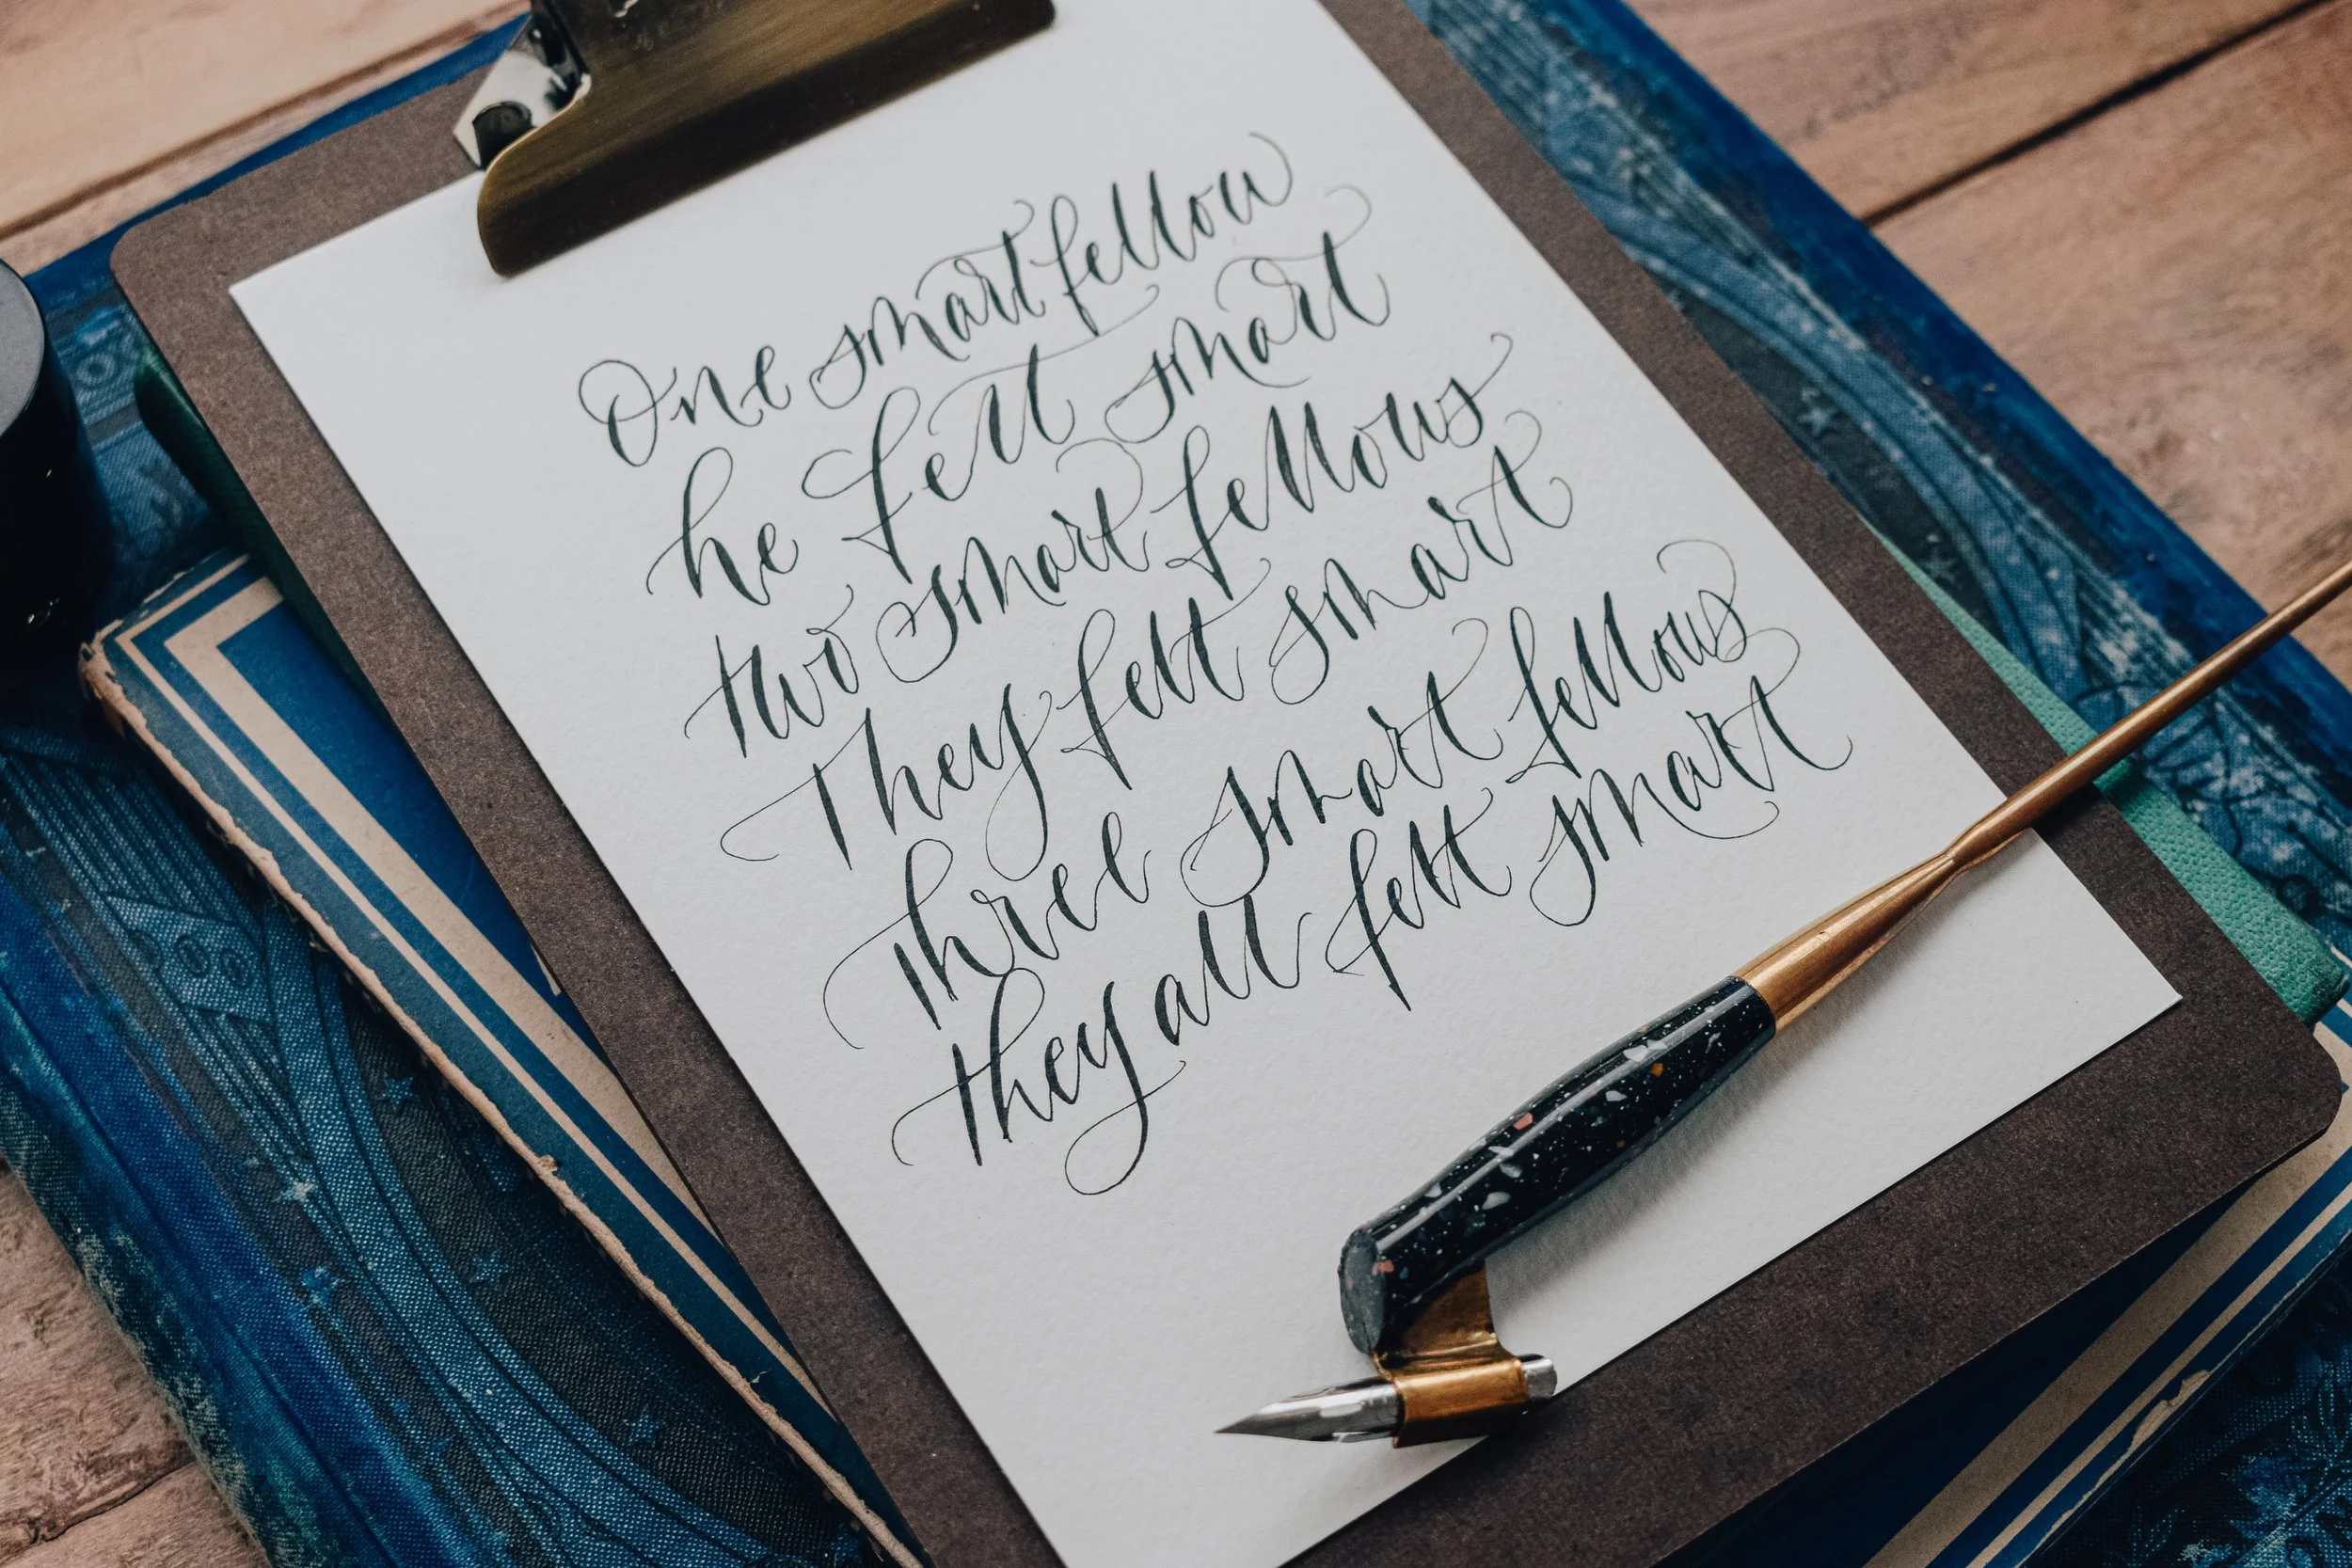 One smart fellow
he felt smart
two smart fellows
They felt smart
three smart fellows
they all felt smart